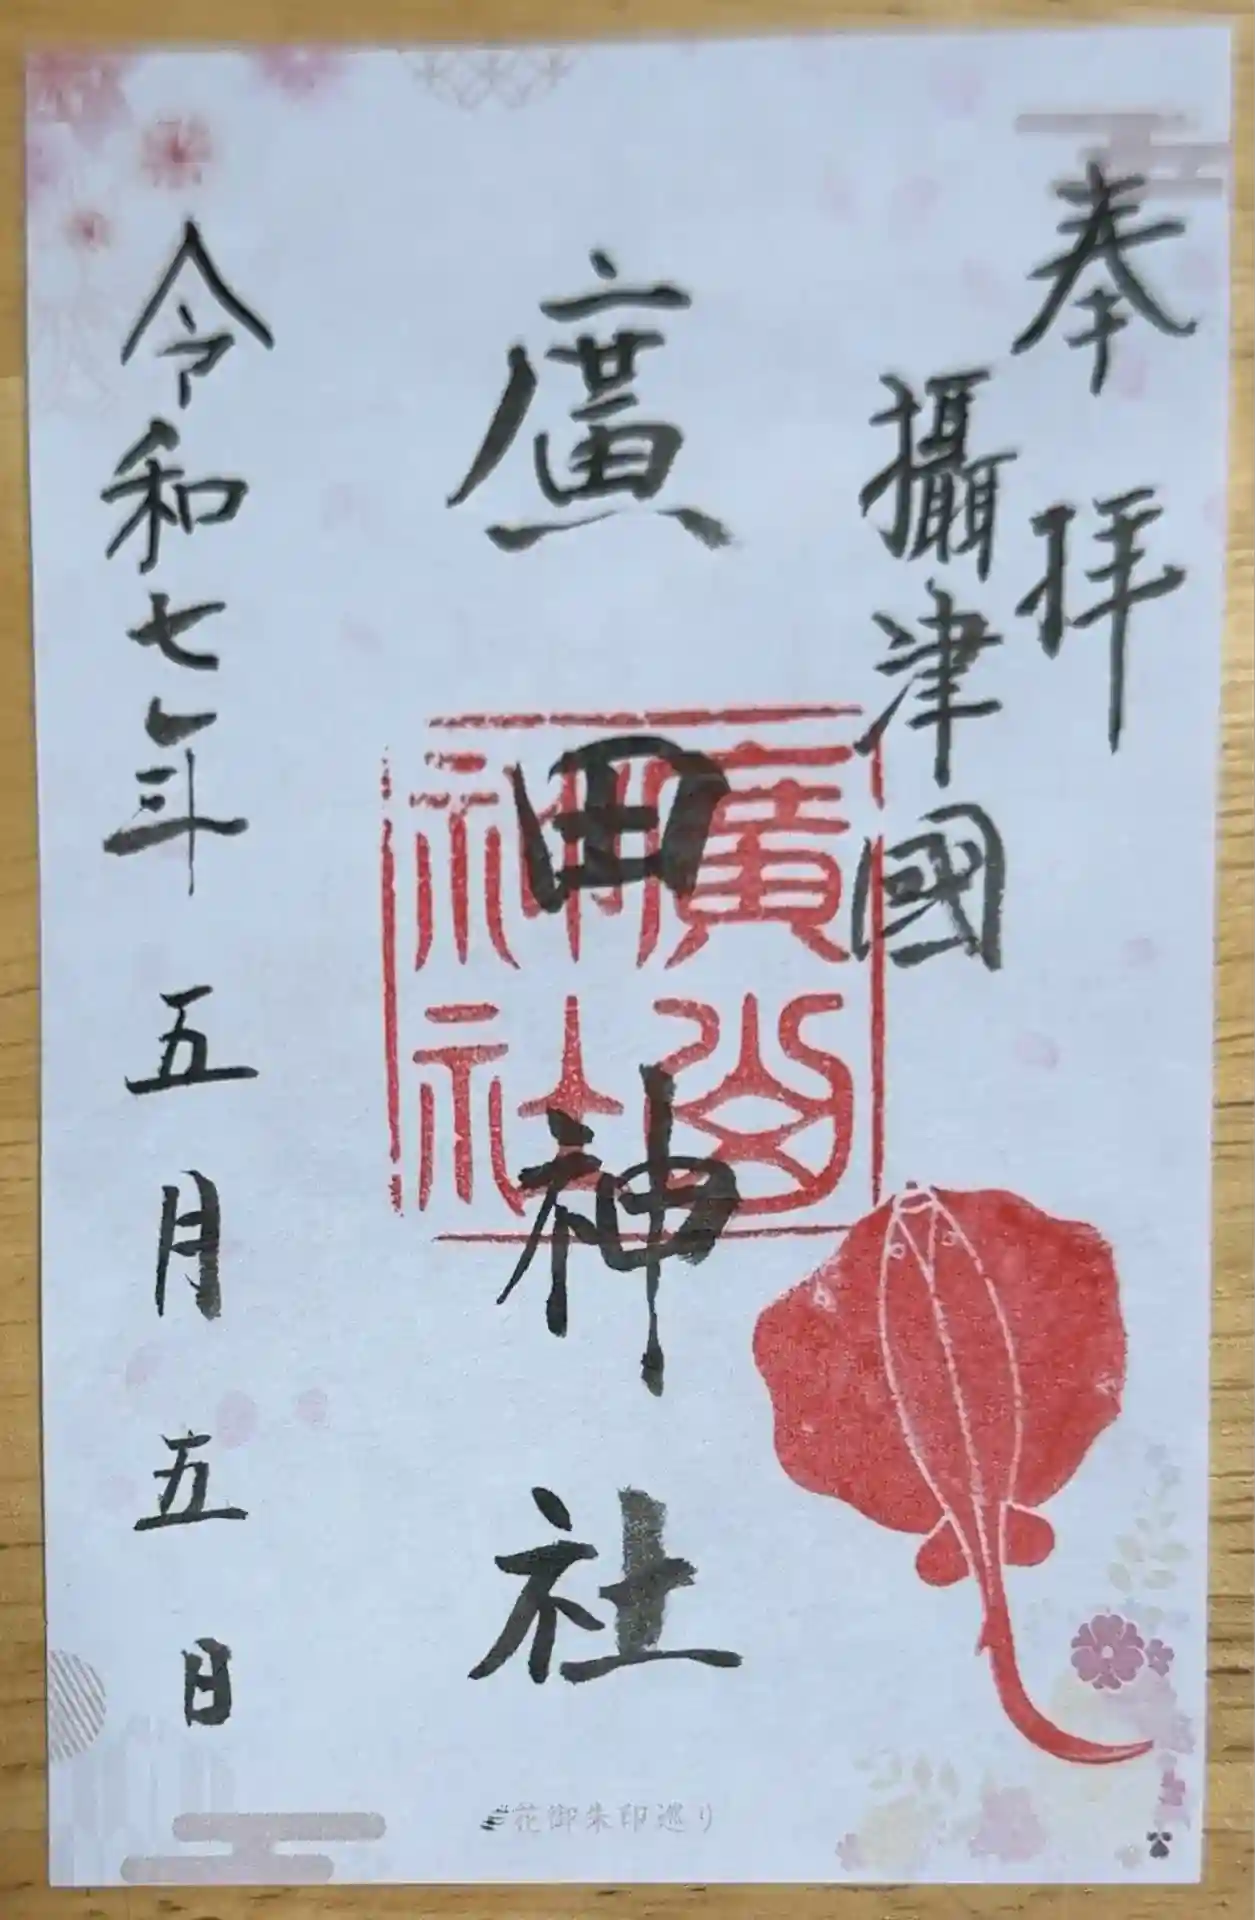 奉拝
攝津國
廣田神社
廣
神社
令和七年五月五日
花御朱印巡り